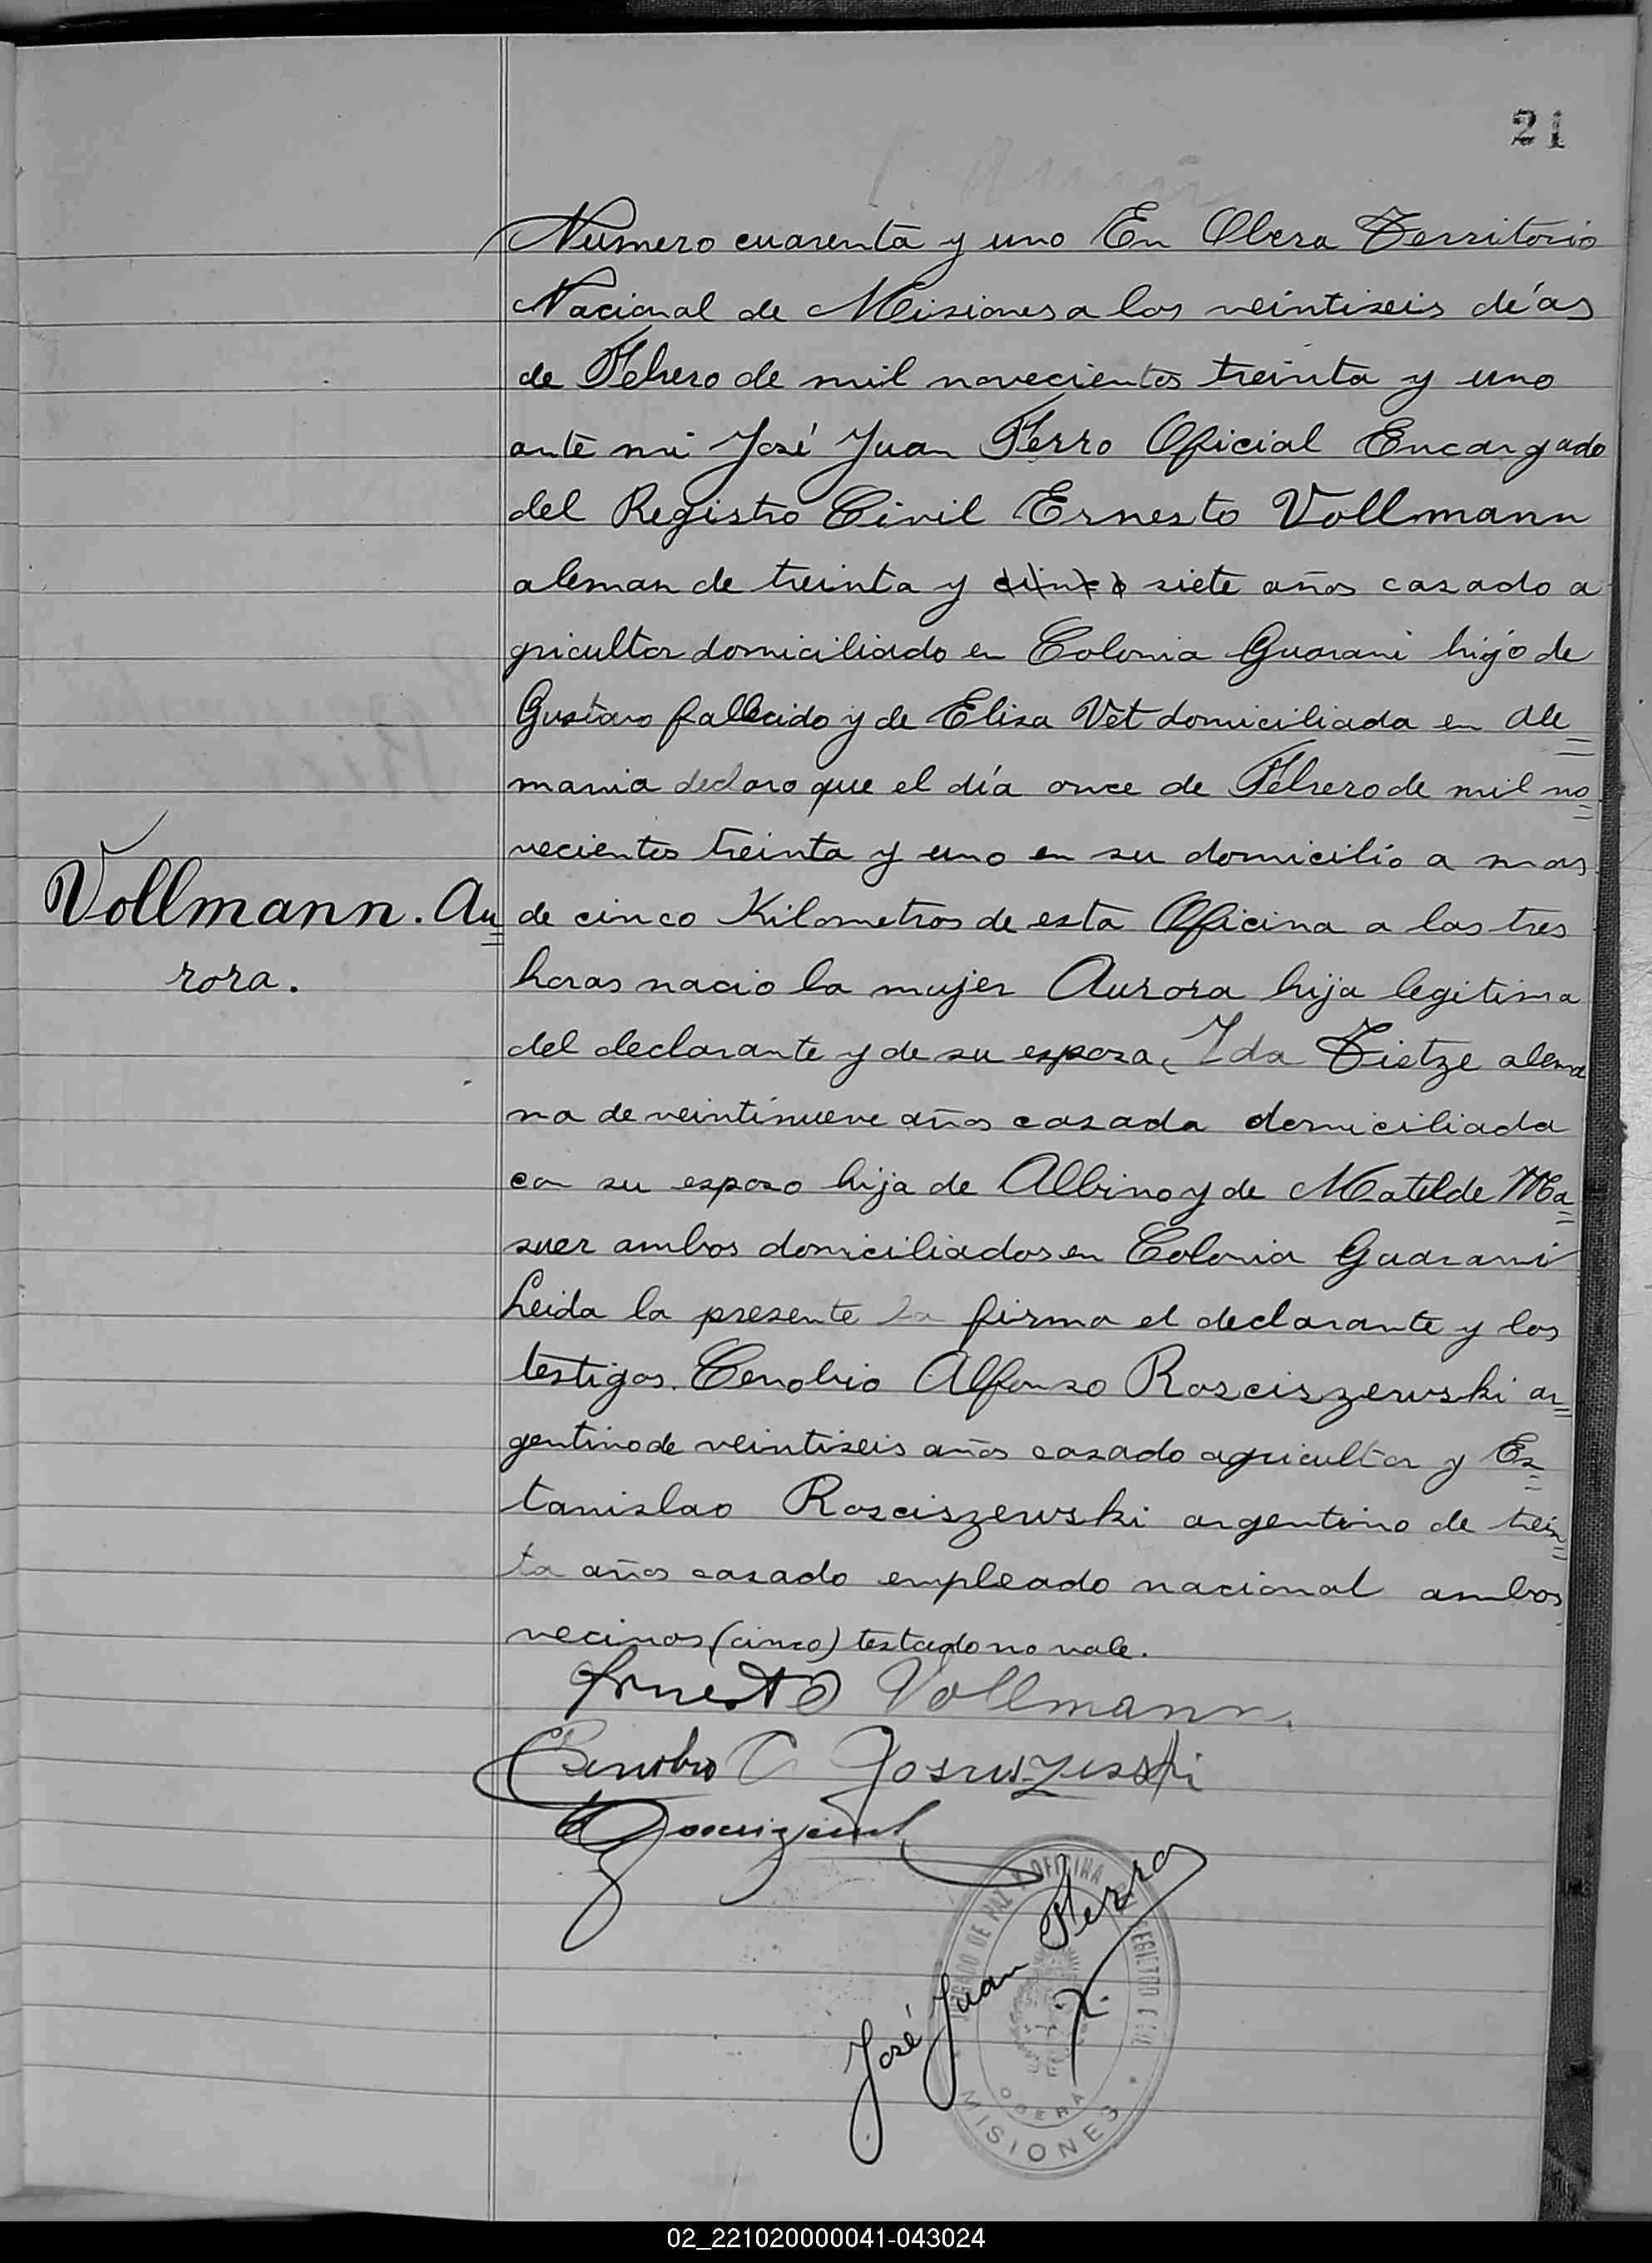 21
Numero cuarenta y uno En Obera Territorio
Nacional de Misiones a los veintiseis días
de Febrero de mil novecientos treinta y uno
ante mi José Juan Ferro Oficial Encargado
del Registro Civil Ernesto Vollmann
aleman de treinta y cinco siete años casado a
gricultor domiciliado en Colonia Guarani hijo de
Gustavo fallecido y de Elisa Vet domiciliada en Ale=
mania declaro que el día once de Febrero de mil no=
vecientos treinta y uno en su domicilio a mas
Vollmann. Au=
rora.
de cinco Kilometros de esta Oficina a las tres
horas nacio la mujer Aurora hija legitima
del declarante y de su esposa, Ida Tietze alema
na de veintinueve años casada domiciliada
con su esposo hija de Albino y de Matilde Ma=
suer ambos domiciliados en Colonia Guarani
Leida la presente la firma el declarante y los
testigos. Cenobio Alfonso Rosciszewski ar=
gentino de veintiseis años casado agricultor y Es=
tanislao Rosciszewski argentino de trein=
ta años casado empleado nacional ambos
vecinos (cinco) testado no vale.
Ernesto Vollmann.
Cenobio
José Juan Ferro
JUZGADO DE PAZ Y OFICINA REGISTRO CIVIL
OBERA
MISIONES
02_221020000041-043024